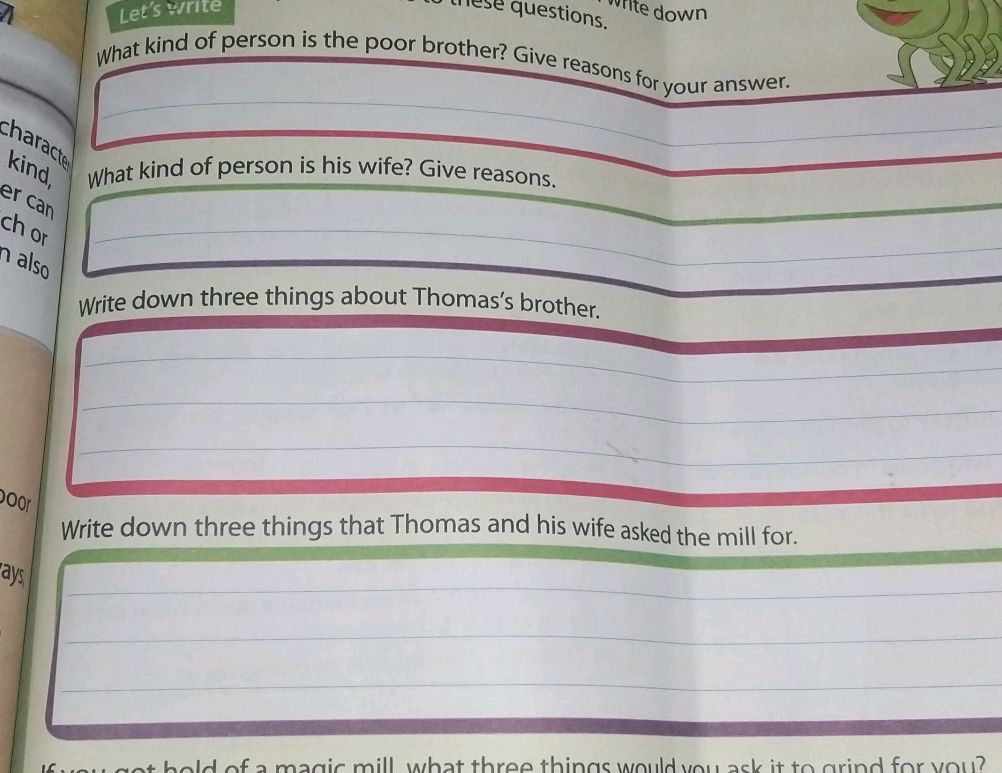 Let's write
these questions.
write down
What kind of person is the poor brother? Give reasons for your answer.
character
kind,
er can
ch or
n also
What kind of person is his wife? Give reasons.
Write down three things about Thomas's brother.
poor
Write down three things that Thomas and his wife asked the mill for.
ays,
If you got hold of a magic mill, what three things would you ask it to grind for you?